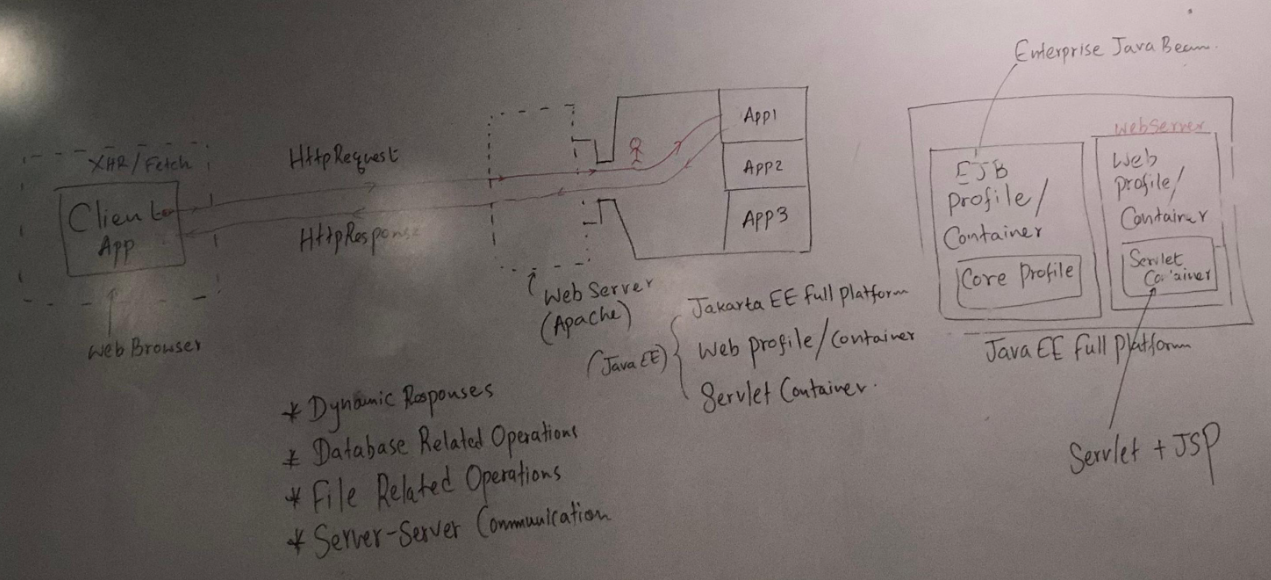 XHR/Fetch
Client
App
Web Browser
HttpRequest
HttpResponse
Web Server
(Apache)
App1
App2
App3
(Java EE)
Jakarta EE Full Platform
Web profile/Container
Servlet Container.
* Dynamic Responses
* Database Related Operations
* File Related Operations
* Server-Server Communication
Enterprise Java Bean.
EJB
profile/
Container
Core Profile
WebServer
Web
profile/
Container
Servlet
Container
Java EE Full Platform
Servlet + JSP